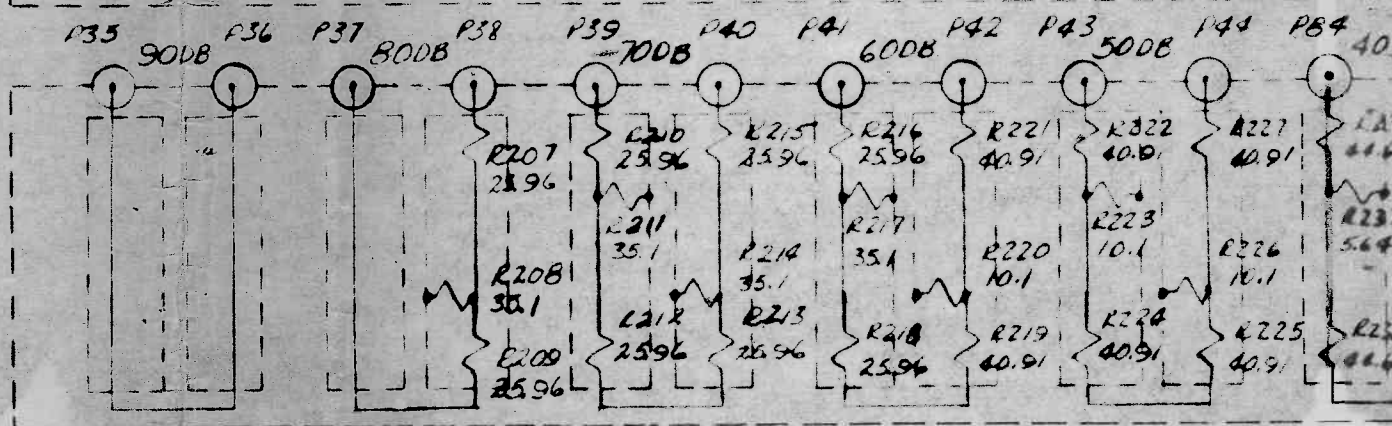 P35 P36 P37 P38 P39 P40 P41 P42 P43 P44 P84
90DB 80DB 70DB 60DB 50DB 40
R207
25.96
R208
35.1
R209
25.96
R210
25.96
R211
35.1
R212
25.96
R215
25.96
R214
35.1
R213
25.96
R216
25.96
R217
35.1
R218
25.96
R221
40.91
R220
10.1
R219
40.91
R222
40.91
R223
10.1
R224
40.91
R227
40.91
R226
10.1
R225
40.91
R23
5.64